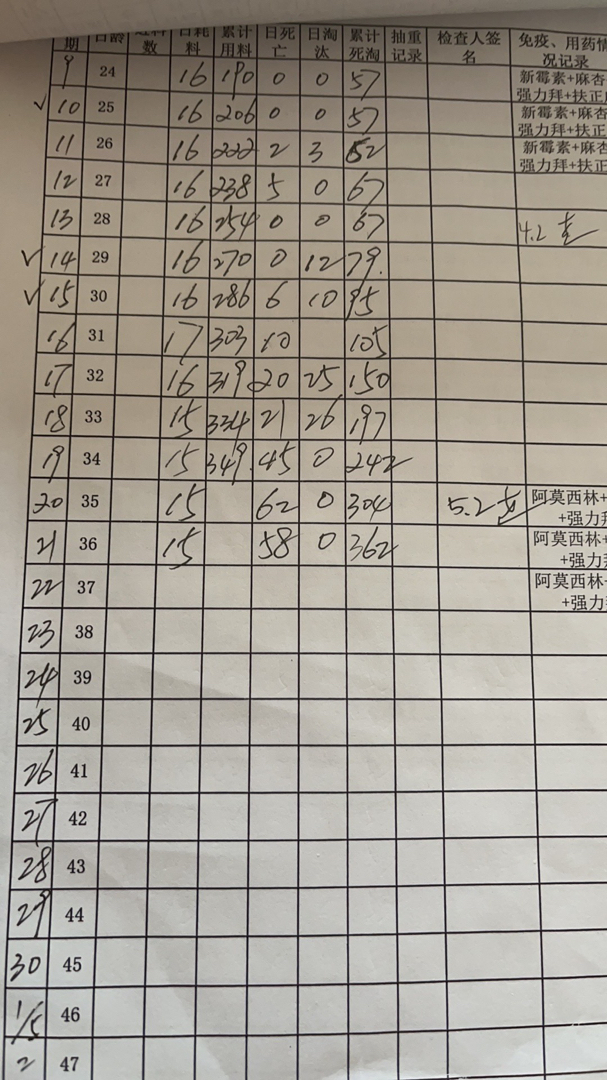 期 日龄 数 日耗料 累计用料 日死亡 日淘汰 累计死淘 抽重记录 检查人签名 免疫、用药情况记录
9 24 16 190 0 0 57 新霉素+麻杏 强力拜+扶正
✓ 10 25 16 206 0 0 57 新霉素+麻杏 强力拜+扶正
11 26 16 222 2 3 62 新霉素+麻杏 强力拜+扶正
12 27 16 238 5 0 67
13 28 16 254 0 0 67 4.2
✓ 14 29 16 270 0 12 79.
✓ 15 30 16 286 6 10 95
16 31 17 303 10 105
17 32 16 319 20 25 150
18 33 15 334 21 26 197
19 34 15 349. 45 0 242
20 35 15 62 0 304 5.2 阿莫西林+ +强力拜
21 36 15 58 0 362 阿莫西林+ +强力拜
22 37 阿莫西林+ +强力拜
23 38
24 39
25 40
26 41
27 42
28 43
29 44
30 45
1/5 46
2 47